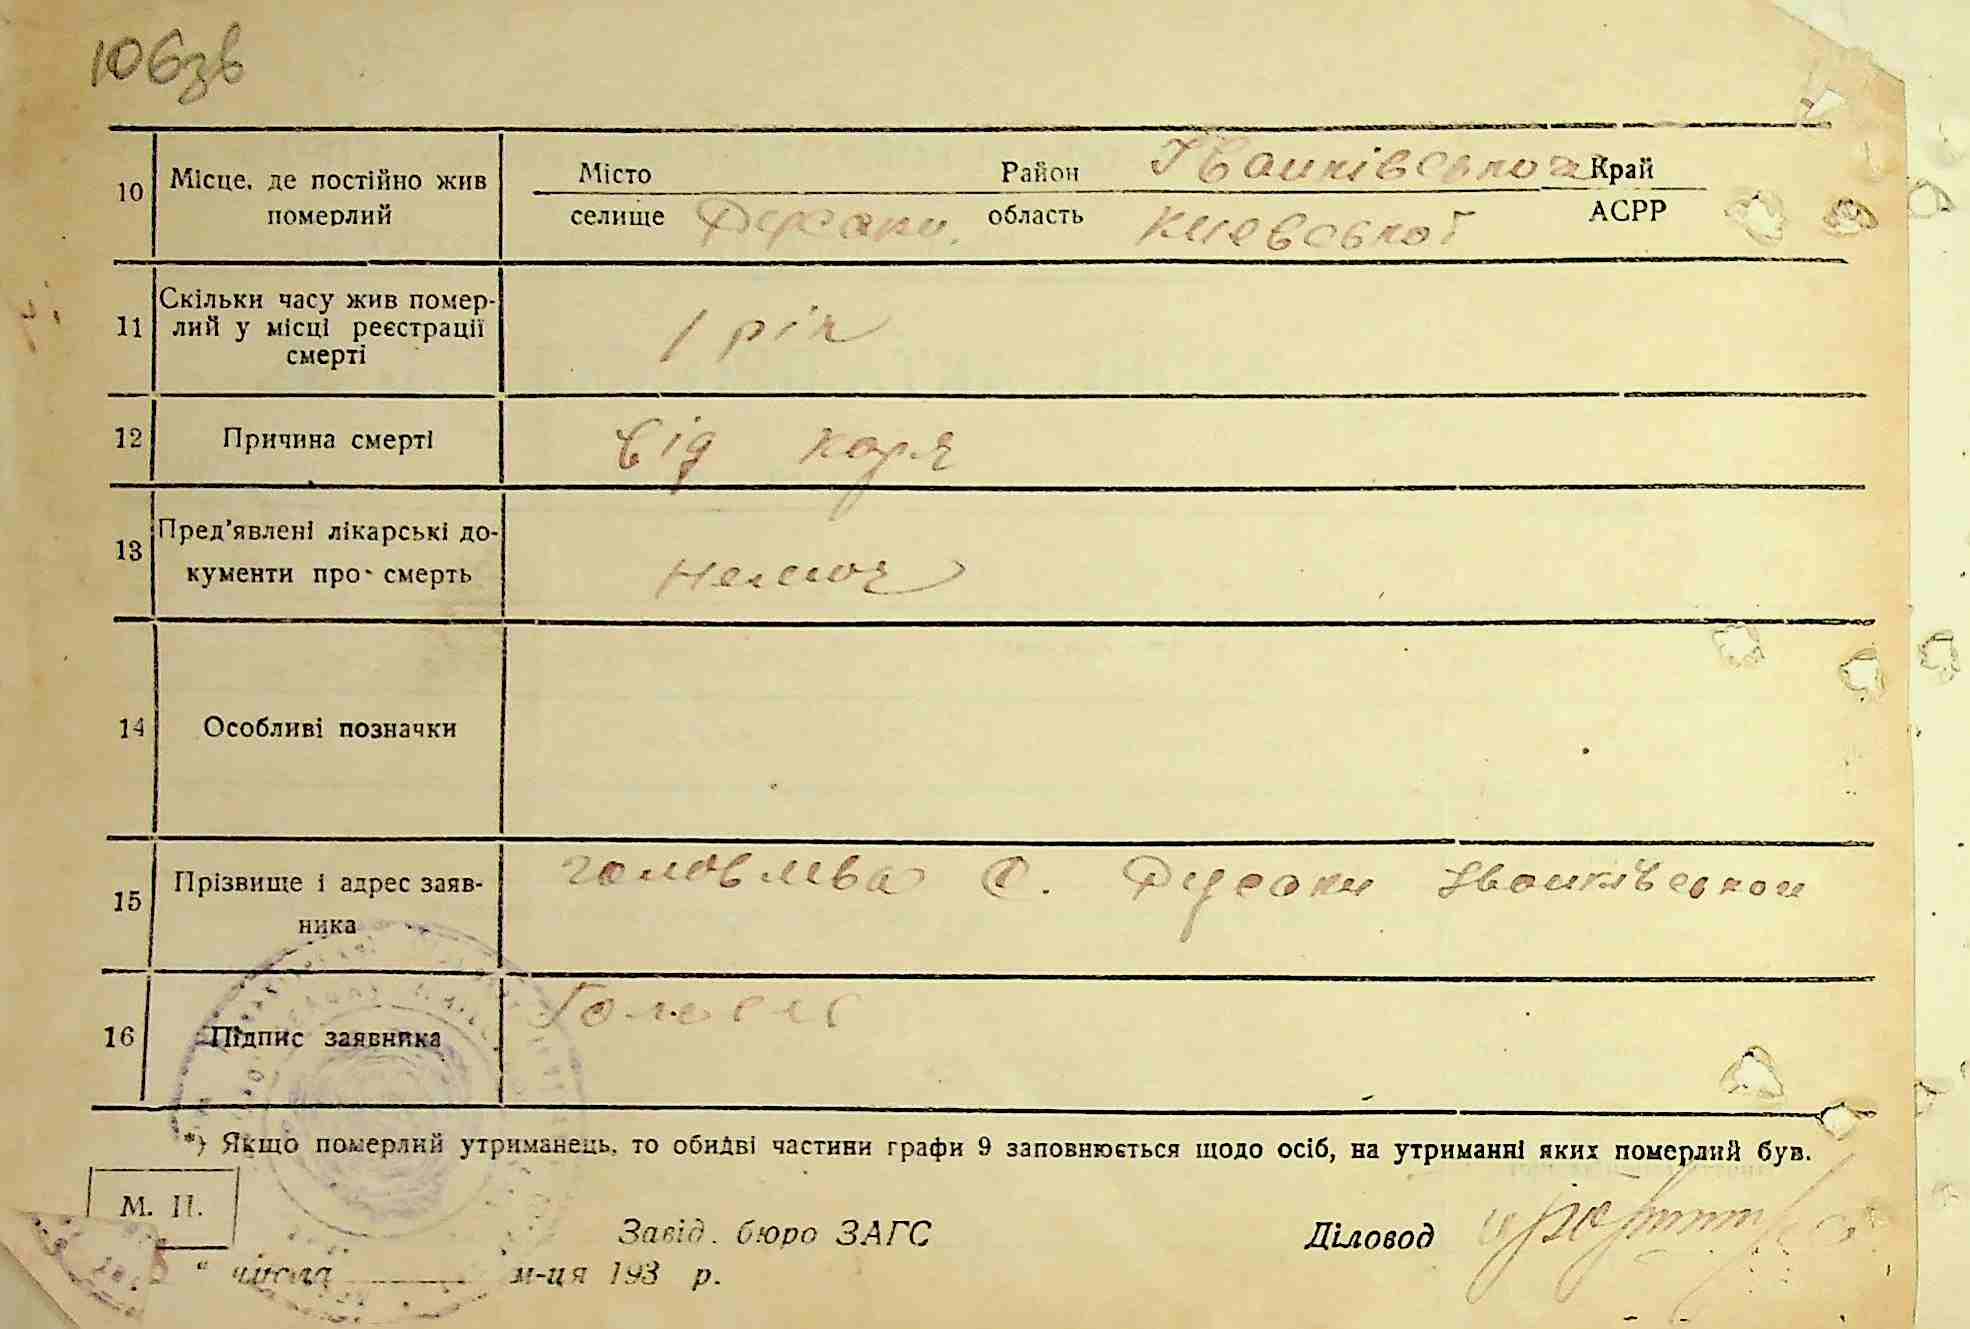 106зв
10 Місце, де постійно жив померлий Місто селище Дусаки. Район область Іванківської Київської Край АСРР
11 Скільки часу жив помер-
лий у місці реєстрації
смерті
1 рік
12 Причина смерті від коря
13 Пред'явлені лікарські до-
кументи про смерть
немає
14 Особливі позначки
15 Прізвище і адрес заяв-
ника
с. Дусаки Іванківської
16 Підпис заявника
*) Якщо померлий утриманець, то обидві частини графи 9 заповнюється щодо осіб, на утриманні яких померлий був.
М. П.
Завід. бюро ЗАГС Діловод
" числа м-ця 193 р.